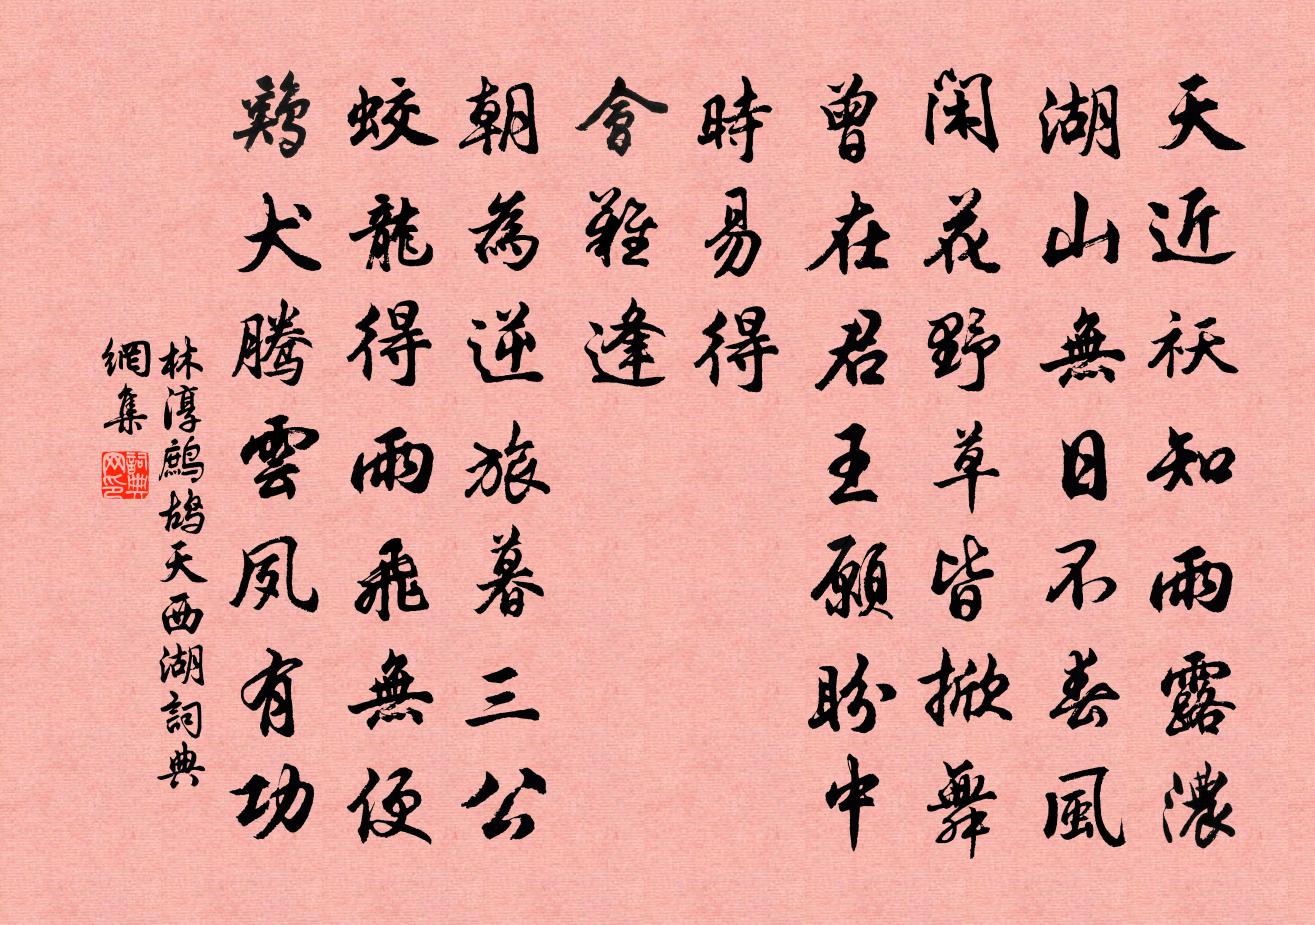 天近祆知雨露濃
湖山無日不春風
閑花野草皆掀舞
曾在君王願盼中
時易得
會難逢
朝為逆旅暮三公
蛟龍得雨飛無便
鷄犬騰雲夙有功
林淳鷓鴣天西湖詞典
網集
詞典
网印